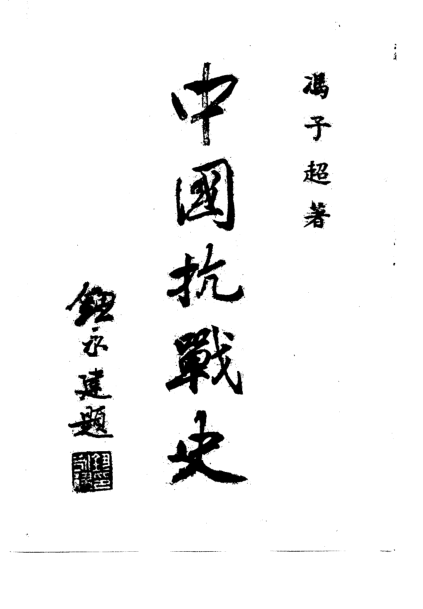 馮子超著
中國抗戰史
鈕永建題